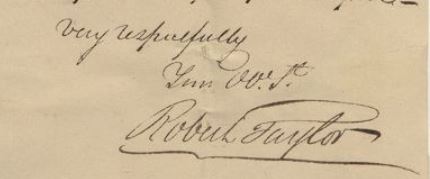 very respectfully
Your Ob.t St.
Robert Taylor